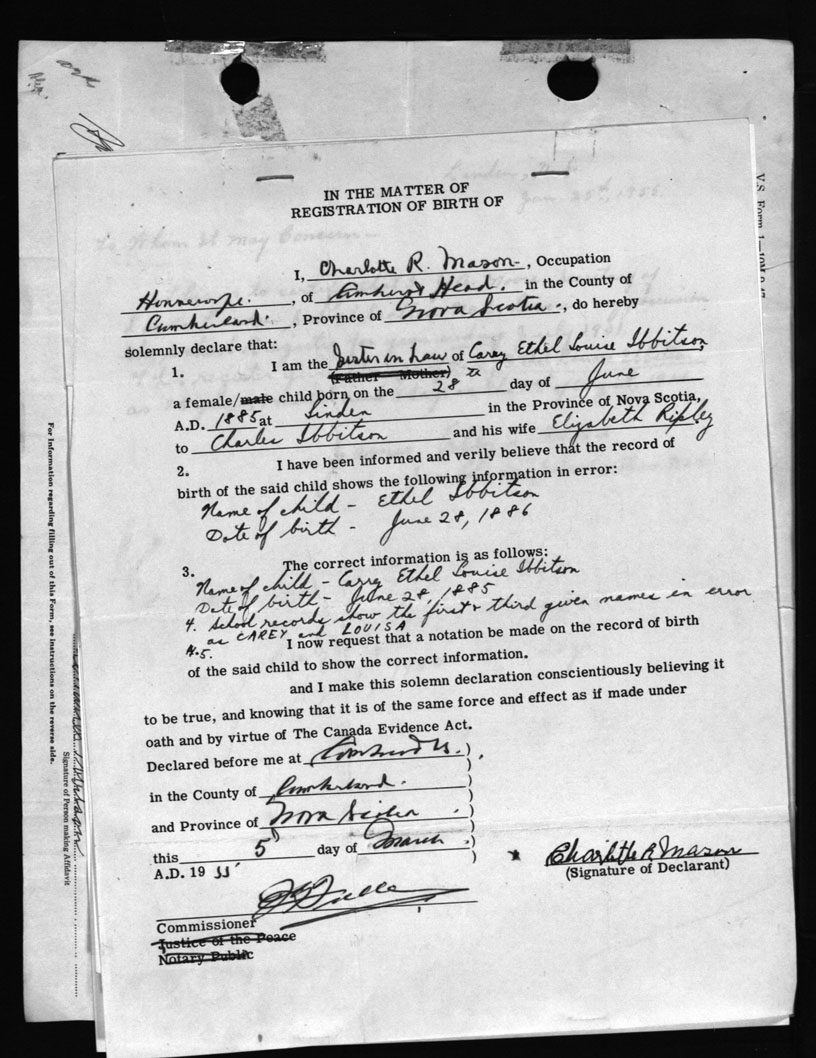 Linden, N.S.
Jan. 25th, 1955.
To Whom It May Concern -
IN THE MATTER OF
REGISTRATION OF BIRTH OF
I, Charlotte R. Mason, Occupation
Housewife, of Amherst Head, in the County of
Cumberland, Province of Nova Scotia, do hereby
solemnly declare that:
1. I am the Sister in Law of Carey Ethel Louise Ibbitson
(Father Mother)
a female/male child born on the 28 day of June
A.D. 1885 at Linden in the Province of Nova Scotia,
to Charles Ibbitson and his wife Elizabeth Ripley
2. I have been informed and verily believe that the record of
birth of the said child shows the following information in error:
Name of child - Ethel Ibbitson
Date of birth - June 28, 1886
3. The correct information is as follows:
Name of child - Carey Ethel Louise Ibbitson
Date of birth - June 28, 1885
4. School records show the first & third given names in error
as CAREY and LOUISA
5. I now request that a notation be made on the record of birth
of the said child to show the correct information.
and I make this solemn declaration conscientiously believing it
to be true, and knowing that it is of the same force and effect as if made under
oath and by virtue of The Canada Evidence Act.
Declared before me at
in the County of Cumberland.
and Province of Nova Scotia
this 5 day of March
A.D. 19 55
Charlotte R. Mason
(Signature of Declarant)
Commissioner
Justice of the Peace
Notary Public
V.S. Form 1
For information regarding filling out of this Form, see instructions on the reverse side.
Signature of Person making Affidavit